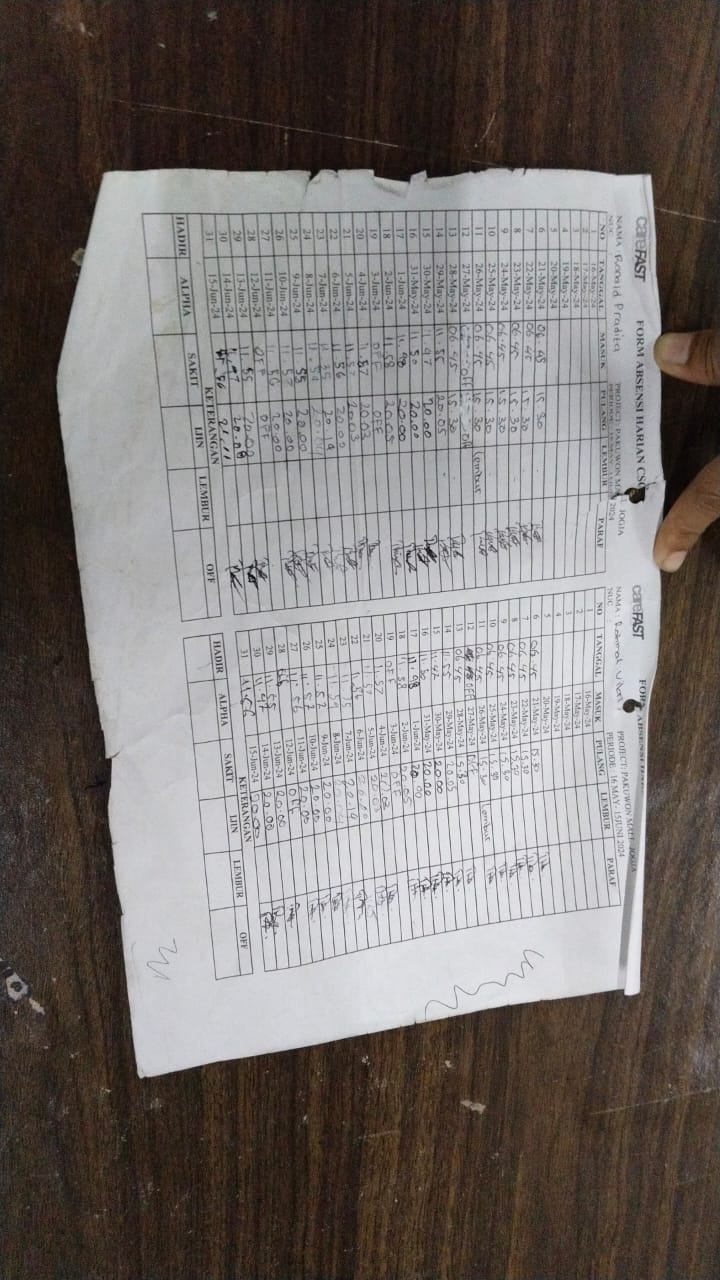 careFAST
FORM ABSENSI HARIAN
NAMA : Ronald Pradita
PROJECT: PAKUWON MALL JOGJA
NUC
2024
NO TANGGAL MASUK PULANG LEMBUR PARAF
2 17-May-24
3 18-May-24
4 19-May-24
5 20-May-24
6 21-May-24 06.45 15.30
7 22-May-24 06.45 15.30
8 23-May-24 06.45 15.30
9 24-May-24 06.45 15.30
10 25-May-24 06.45 15.30
11 26-May-24 06.45 15.30 lembur
12 27-May-24 OFF
13 28-May-24 06.45 15.30
14 29-May-24 11.55 20.05
15 30-May-24 11.47 20.00
16 31-May-24 11.50 20.00
17 1-Jun-24 11.48 20.00
18 2-Jun-24 11.58 20.05
19 3-Jun-24 OFF OFF
20 4-Jun-24 20.03
21 5-Jun-24 11.57 20.03
22 6-Jun-24 11.56 20.00
23 7-Jun-24 20.14
24 8-Jun-24 11.54
25 9-Jun-24 11.55 20.00
26 10-Jun-24 11.57 20.00
27 11-Jun-24 11.56 20.00
28 12-Jun-24 OFF OFF
29 13-Jun-24 11.55 20.00
30 14-Jun-24 20.08
31 15-Jun-24
KETERANGAN
HADIR ALPHA SAKIT IJIN LEMBUR OFF
careFAST
FORM ABSENSI
NAMA :
PROJECT: PAKUWON MALL JOGJA
NUC
PERIODE : 16 MAY - 15 JUNI 2024
NO TANGGAL MASUK PULANG LEMBUR PARAF
1 16-May-24
2 17-May-24
3 18-May-24
4 19-May-24
5 20-May-24
6 21-May-24 06.45 15.30
7 22-May-24 06.45 15.30
8 23-May-24 06.45 15.30
9 24-May-24 06.45 15.30
10 25-May-24 06.45 15.30
11 26-May-24 06.45 15.30 lembur
12 27-May-24 OFF OFF
13 28-May-24 06.45 15.30
14 29-May-24 11.55 20.05
15 30-May-24 11.47 20.00
16 31-May-24 11.50 20.00
17 1-Jun-24 11.48 20.00
18 2-Jun-24 11.58 20.05
19 3-Jun-24 OFF OFF
20 4-Jun-24 11.52 20.03
21 5-Jun-24 11.57 20.03
22 6-Jun-24 11.56 20.00
23 7-Jun-24
24 8-Jun-24
25 9-Jun-24 20.00
26 10-Jun-24 11.57 20.00
27 11-Jun-24 11.56 20.00
28 12-Jun-24 OFF
29 13-Jun-24 11.55 20.00
30 14-Jun-24 11.47 20.00
31 15-Jun-24 11.56 20.00
KETERANGAN
HADIR ALPHA SAKIT IJIN LEMBUR OFF